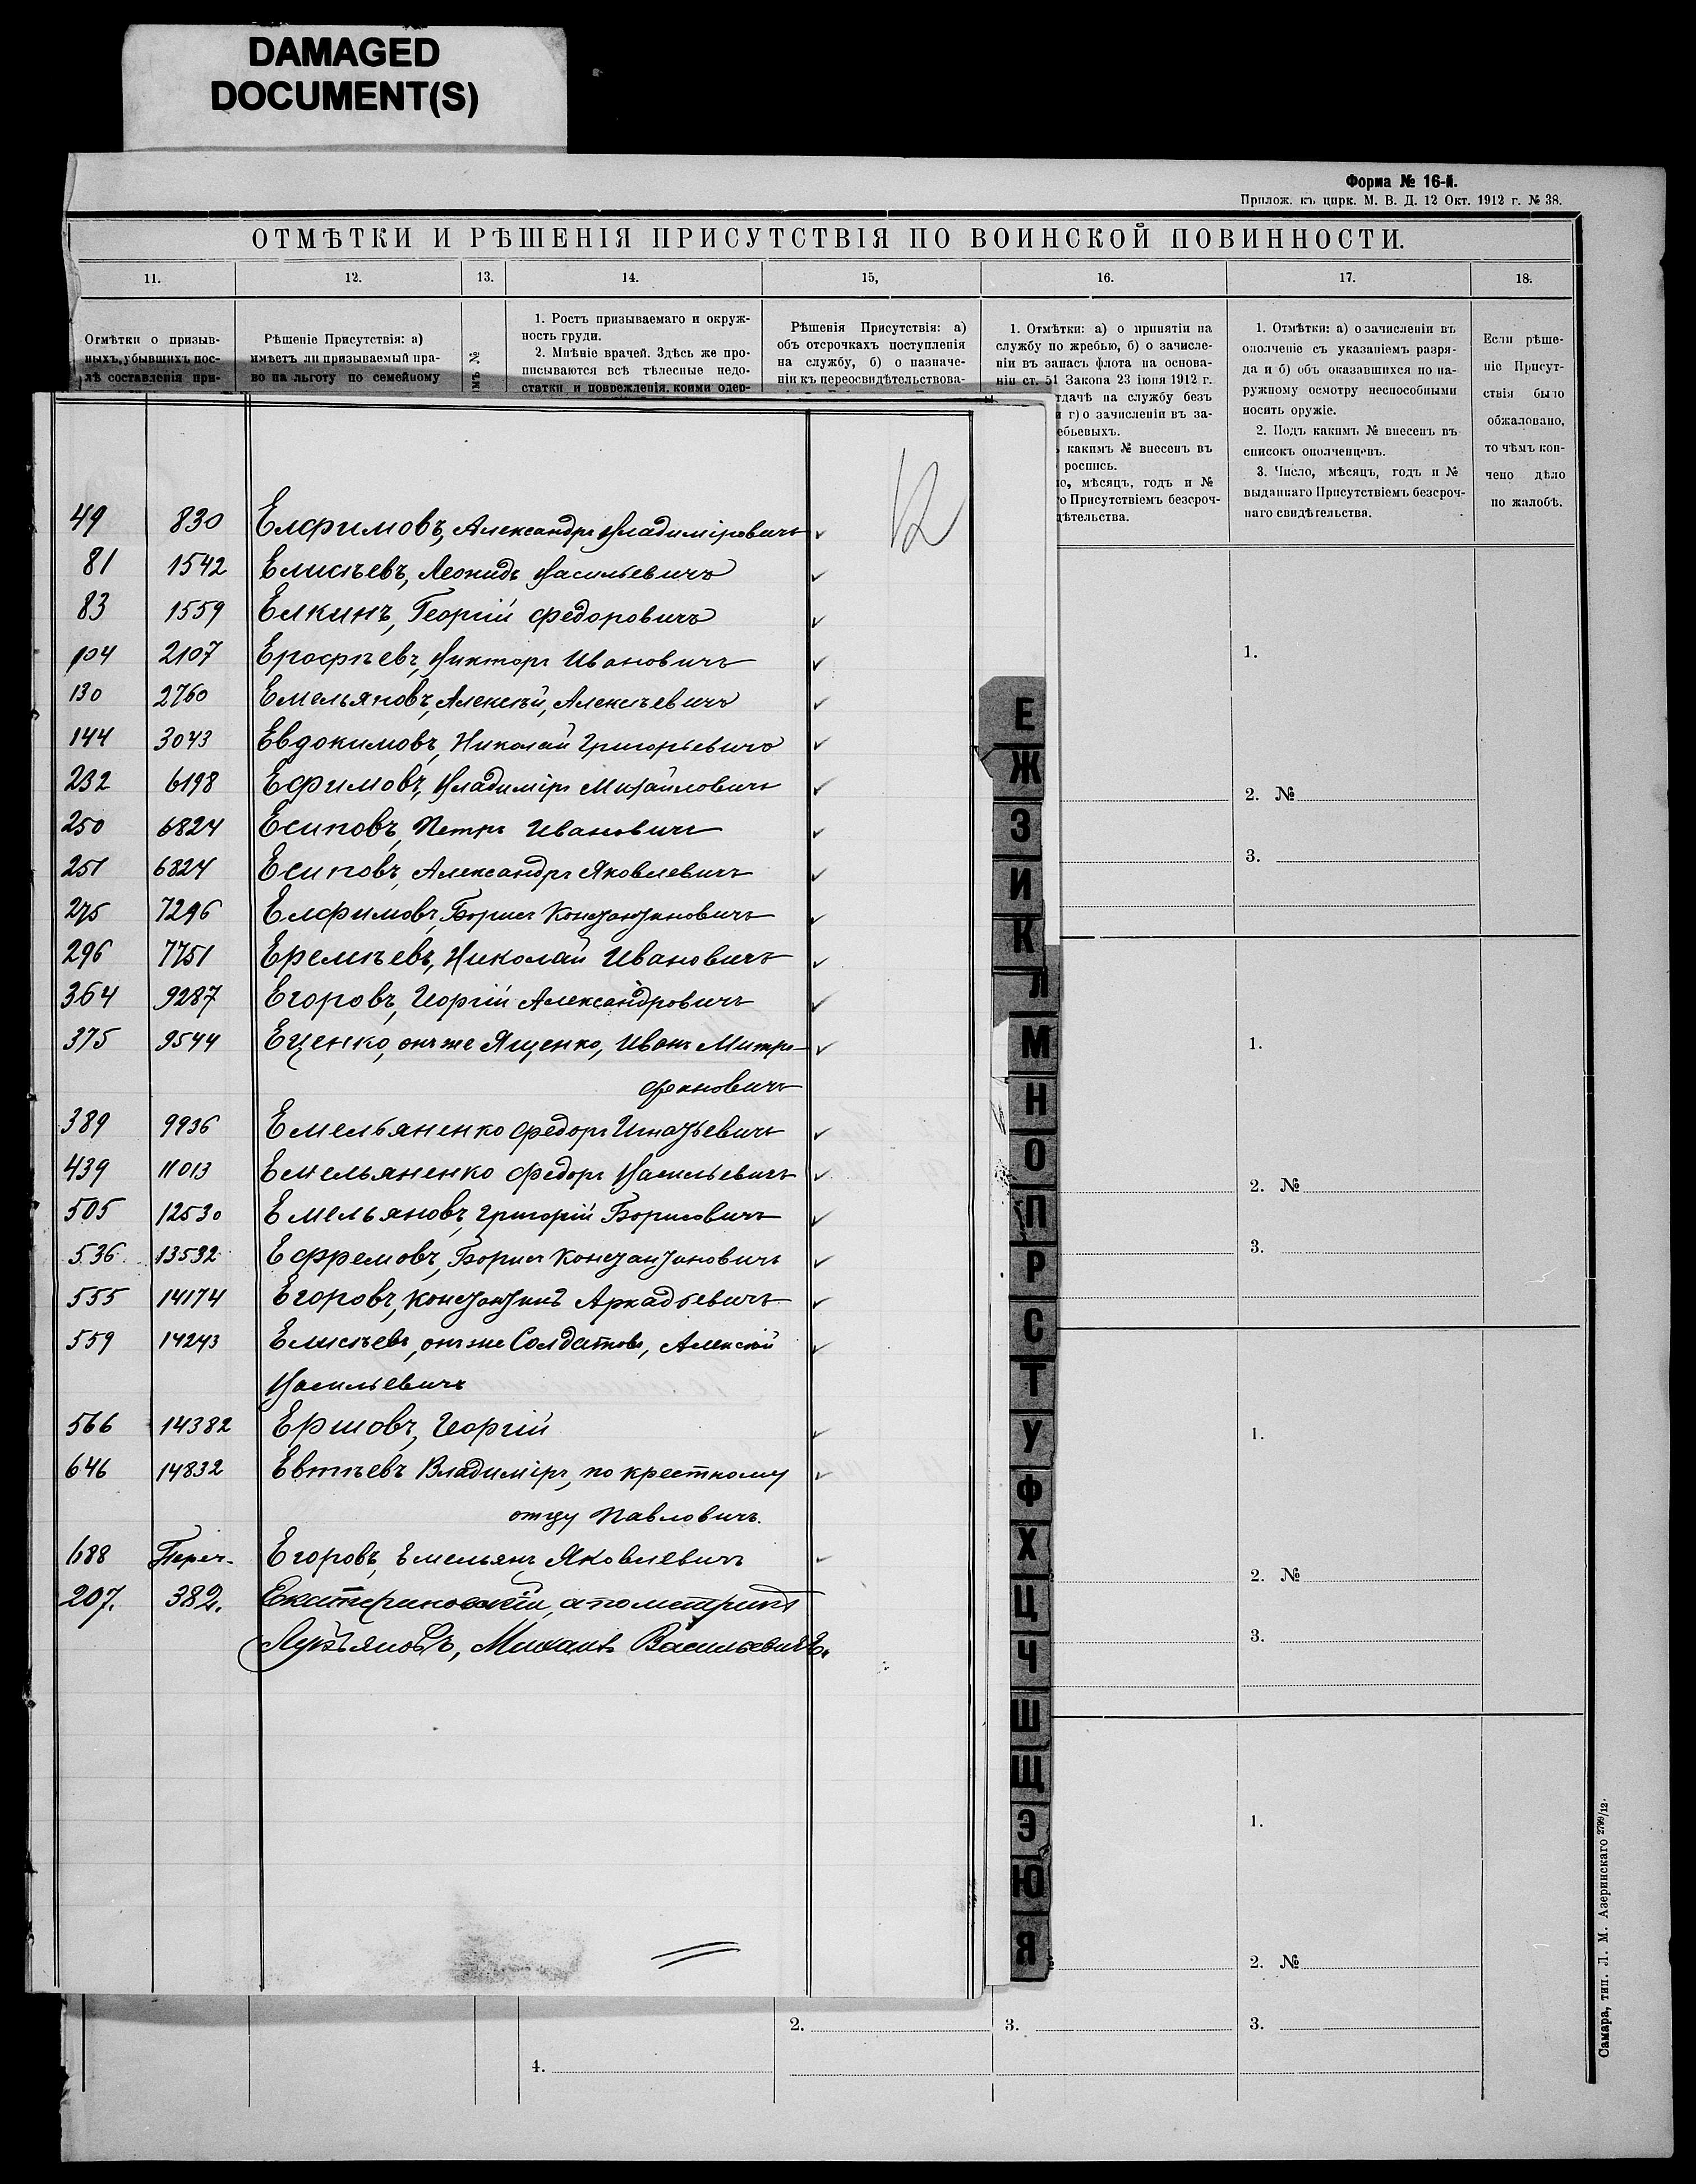 DAMAGED
DOCUMENT(S)
Форма № 16-й.
Прилож. къ цирк. М. В. Д. 12 Окт. 1912 г. № 38.
ОТМѢТКИ И РѢШЕНІЯ ПРИСУТСТВІЯ ПО ВОИНСКОЙ ПОВИННОСТИ.
11. 12. 13. 14. 15, 16. 17. 18.
Отмѣтки о призыв-
ныхъ, убывшихъ пос-
лѣ составленія при-
Рѣшеніе Присутствія: а)
имѣетъ ли призываемый пра-
во на льготу по семейному
№
1. Ростъ призываемаго и окруж-
ность груди.
2. Мнѣніе врачей. Здѣсь же про-
писываются всѣ тѣлесные недо-
статки и поврежденія, коими одер-
Рѣшенія Присутствія: а)
объ отсрочкахъ поступленія
на службу, б) о назначе-
ніи къ переосвидѣтельствова-
1. Отмѣтки: а) о принятіи на
службу по жребью, б) о зачисле-
ніи въ запасъ флота на основа-
ніи ст. 51 Закона 23 іюня 1912 г.
тдачѣ на службу безъ
и г) о зачисленіи въ за-
ебьевыхъ.
какимъ № внесенъ въ
роспись.
ло, мѣсяцъ, годъ и №
го Присутствіемъ безсроч-
дѣтельства.
1. Отмѣтки: а) о зачисленіи въ
ополченіе съ указаніемъ разря-
да и б) объ оказавшихся по на-
ружному осмотру неспособными
носить оружіе.
2. Подъ какимъ № внесенъ въ
списокъ ополченцевъ.
3. Число, мѣсяцъ, годъ и №
выданнаго Присутствіемъ безсроч-
наго свидѣтельства.
Если рѣше-
ніе Присут-
ствія было
обжаловано,
то чѣмъ кон-
чено дѣло
по жалобѣ.
12
49 830 Елфимовъ, Александръ Владиміровичъ
81 1542 Елисѣевъ, Леонидъ Васильевичъ
83 1559 Елкинъ, Георгій Федоровичъ
104 2107 Ерофѣевъ, Викторъ Ивановичъ
130 2760 Емельяновъ, Алексѣй, Алексѣевичъ
144 3043 Евдокимовъ, Николай Григорьевичъ
232 6198 Ефимовъ, Владиміръ Михайловичъ
250 6824 Есиповъ, Петръ Ивановичъ
251 6824 Есиповъ, Александръ Яковлевичъ
275 7296 Елфимовъ, Борисъ Константиновичъ
296 7751 Еремѣевъ, Николай Ивановичъ
364 9287 Егоровъ, Георгій Александровичъ
375 9544 Еценко, онъ же Яценко, Иванъ Митро-
фановичъ
389 9936 Емельяненко Федоръ Игнатьевичъ
439 11013 Емельяненко Федоръ Васильевичъ
505 12530 Емельяновъ, Григорій Борисовичъ
536 13532 Ефремовъ, Борисъ Константиновичъ
555 14174 Егоровъ, Константинъ Аркадьевичъ
559 14243 Елисѣевъ, онъ же Солдатовъ, Алексѣй
Васильевичъ
566 14382 Ершовъ, Георгій
646 14832 Евтѣевъ Владиміръ, по крестному
отцу Павловичъ.
688 Переч. Егоровъ, Емельянъ Яковлевичъ
207. 382. Екатериновскій, а по метрикѣ
Лукьяновъ, Михаилъ Васильевичъ.
Е
Ж
З
И
К
Л
М
Н
О
П
Р
С
Т
У
Ф
Х
Ц
Ч
Ш
Щ
Э
Ю
Я
1.
2. №
3.
1.
2. №
3.
1.
2. №
3.
1.
2. №
2. 3. 3.
4.
Самара, тип. Л. М. Азеринскаго 2799/12.